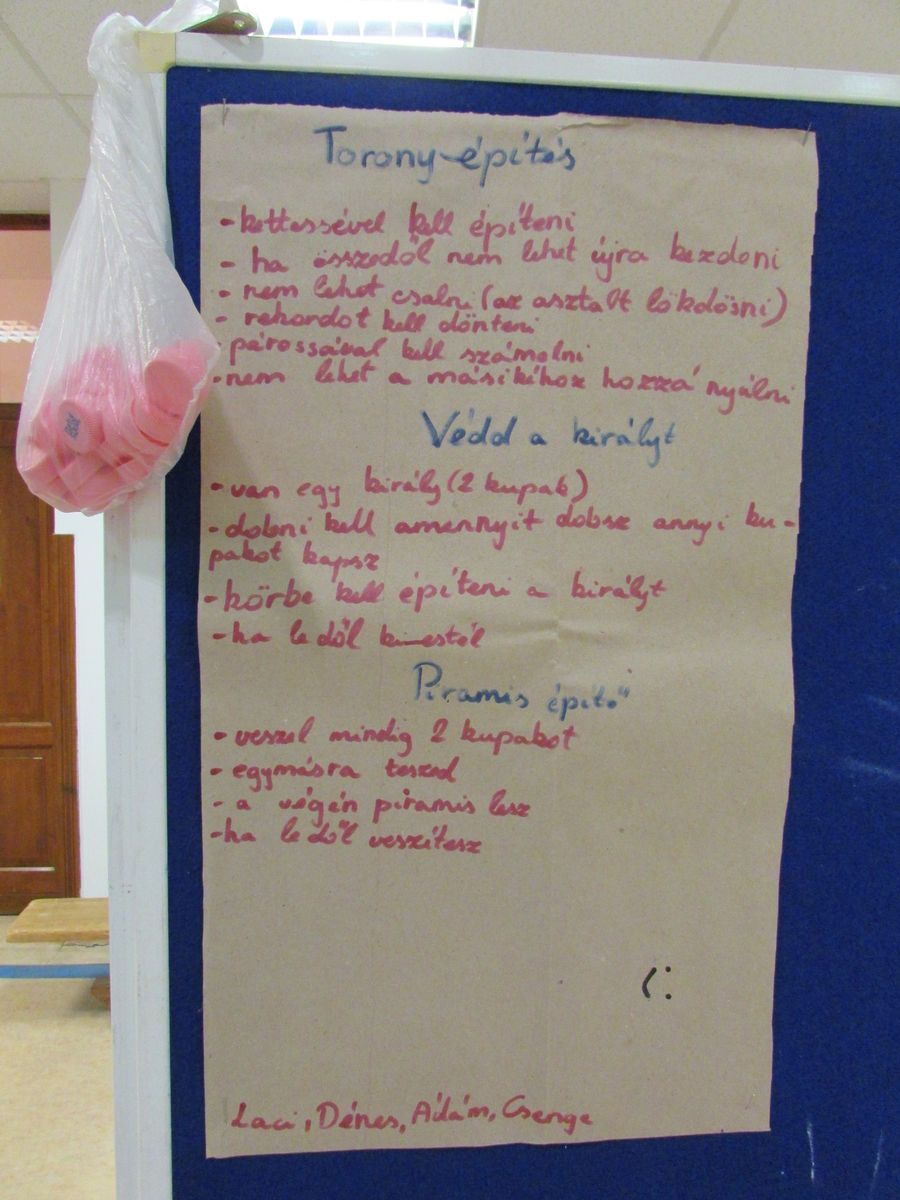 Torony-építés
- kettessével kell építeni
- ha összedől nem lehet újra kezdeni
- nem lehet csalni (az asztalt lökdösni)
- rekordot kell dönteni
- párossával kell számolni
- nem lehet a másikéhoz hozzá nyálni
Védd a királyt
- van egy király (2 kupak)
- dobni kell amennyit dobsz annyi ku-
pakot kapsz
- körbe kell építeni a királyt
- ha ledől kiestél
Piramis építő
- veszel mindig 2 kupakot
- egymásra teszed
- a végén piramis lesz
- ha ledől veszítesz
(:
Laci, Dénes, Ádám, Csenge